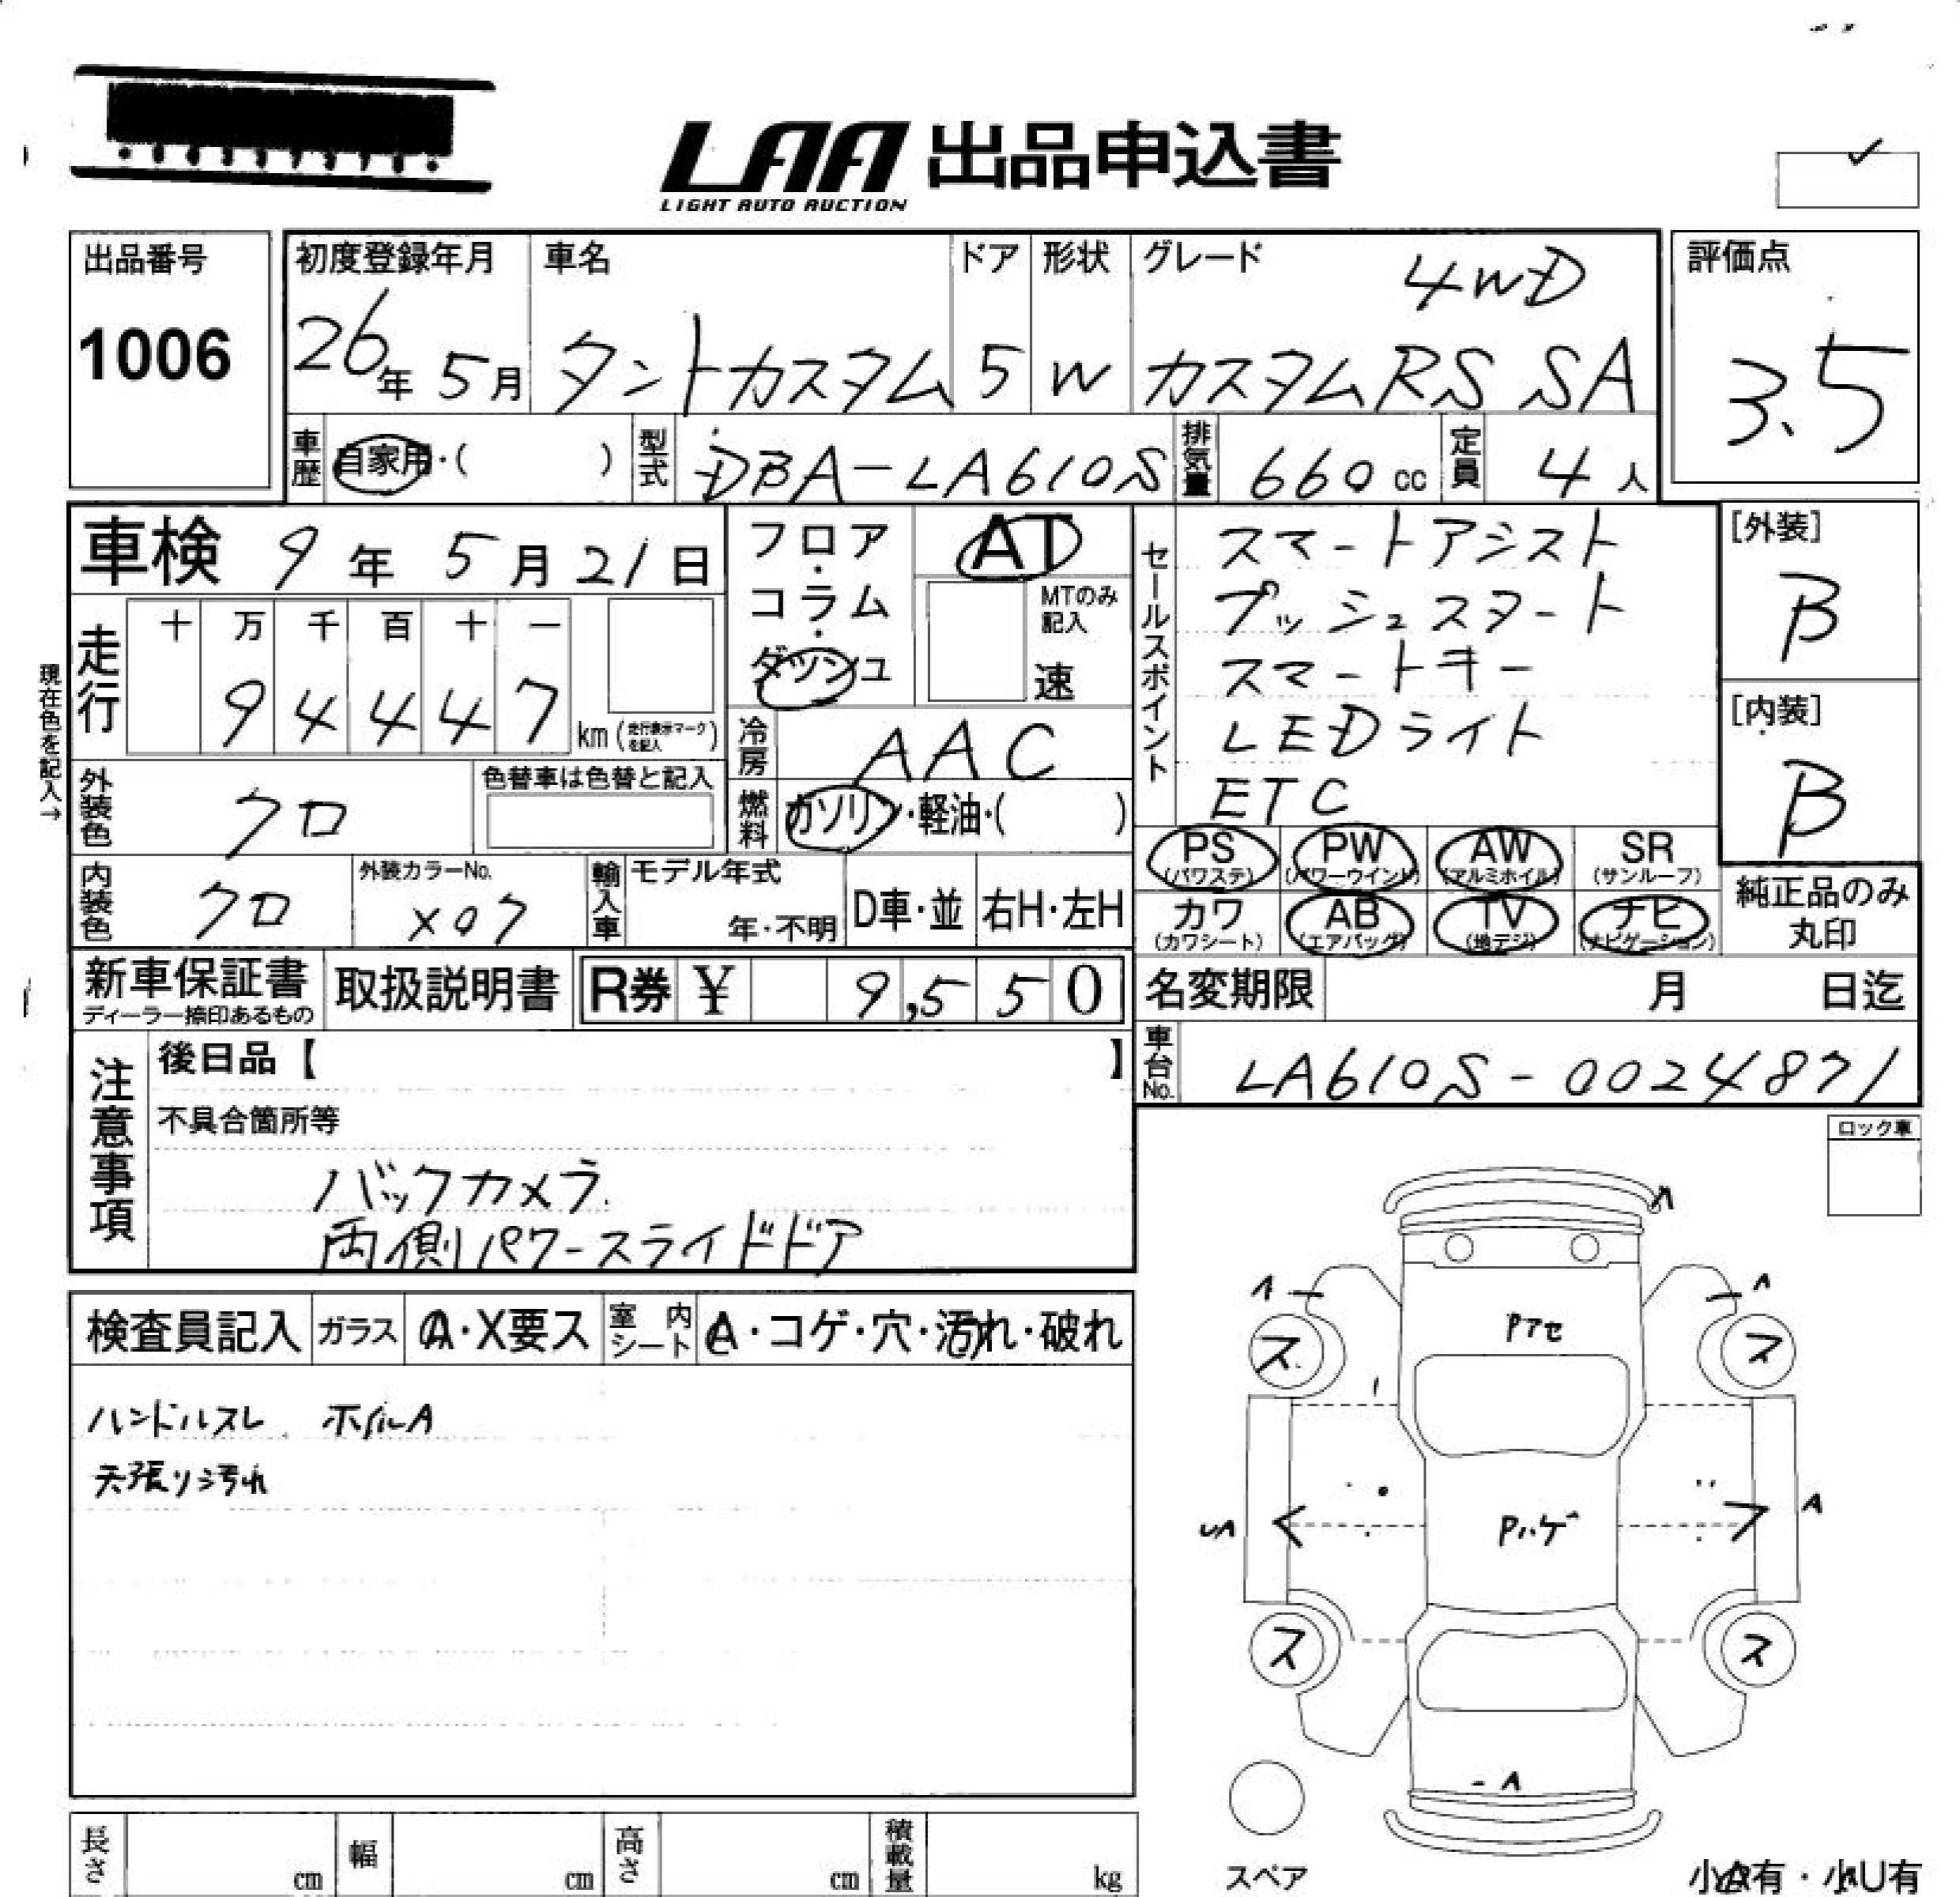 LAA 出品申込書
LIGHT AUTO AUCTION
出品番号
1006
初度登録年月
26年 5月
車名
タントカスタム
ドア
5
形状
W
グレード
4WD
カスタムRS SA
評価点
3.5
車歴
自家用・( )
型式
DBA-LA610S
排気量
660 cc
定員
4人
車検 9年 5月 21日
現在色を記入→
走行
十 万 千 百 十 一
9 4 4 4 7 km (走行表示マークを記入)
フロア・コラム・ダッシュ
AT
MTのみ記入
速
冷房
AAC
燃料
ガソリン・軽油・( )
セールスポイント
スマートアシスト
プッシュスタート
スマートキー
LEDライト
ETC
[外装]
B
[内装]
B
外装色
クロ
色替車は色替と記入
内装色
クロ
外装カラーNo.
X07
輸入車
モデル年式
年・不明
D車・並
右H・左H
PS (パワステ)
PW (パワーウインド)
AW (アルミホイル)
SR (サンルーフ)
カワ (カワシート)
AB (エアバッグ)
TV (地デジ)
ナビ (ナビゲーション)
純正品のみ丸印
新車保証書
ディーラー捺印あるもの
取扱説明書
R券 ¥ 9,550
名変期限 月 日迄
車台No.
LA610S-0024871
注意事項
後日品【 】
不具合箇所等
バックカメラ
両側パワースライドドア
ロック車
検査員記入
ガラス
A・X要ス
室内シート
A・コゲ・穴・汚れ・破れ
ハンドルスレ ホイルA
天張り汚れ
A
A
A
Pアセ
ス
ス
UA
Pハゲ
A
ス
ス
A
スペア
長さ cm
幅 cm
高さ cm
積載量 kg
小A有・小U有